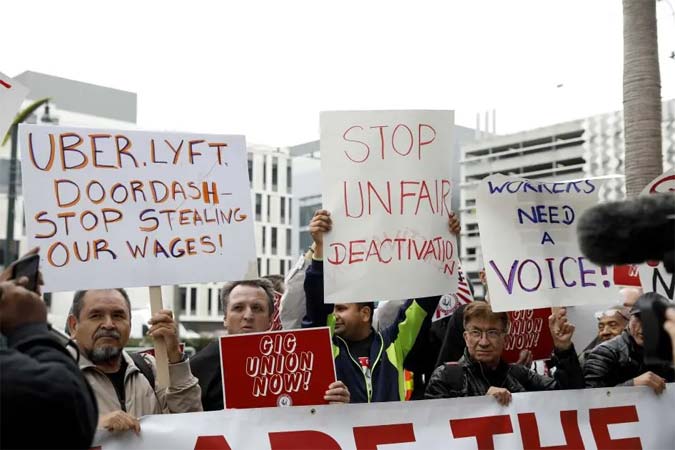 UBER, LYFT,
DOORDASH-
STOP STEALING
OUR WAGES!
STOP
UNFAIR
DEACTIVATION
WORKERS
NEED
A
VOICE!
GIG
UNION
NOW!
GIG
UNION
NOW!
ARE THE